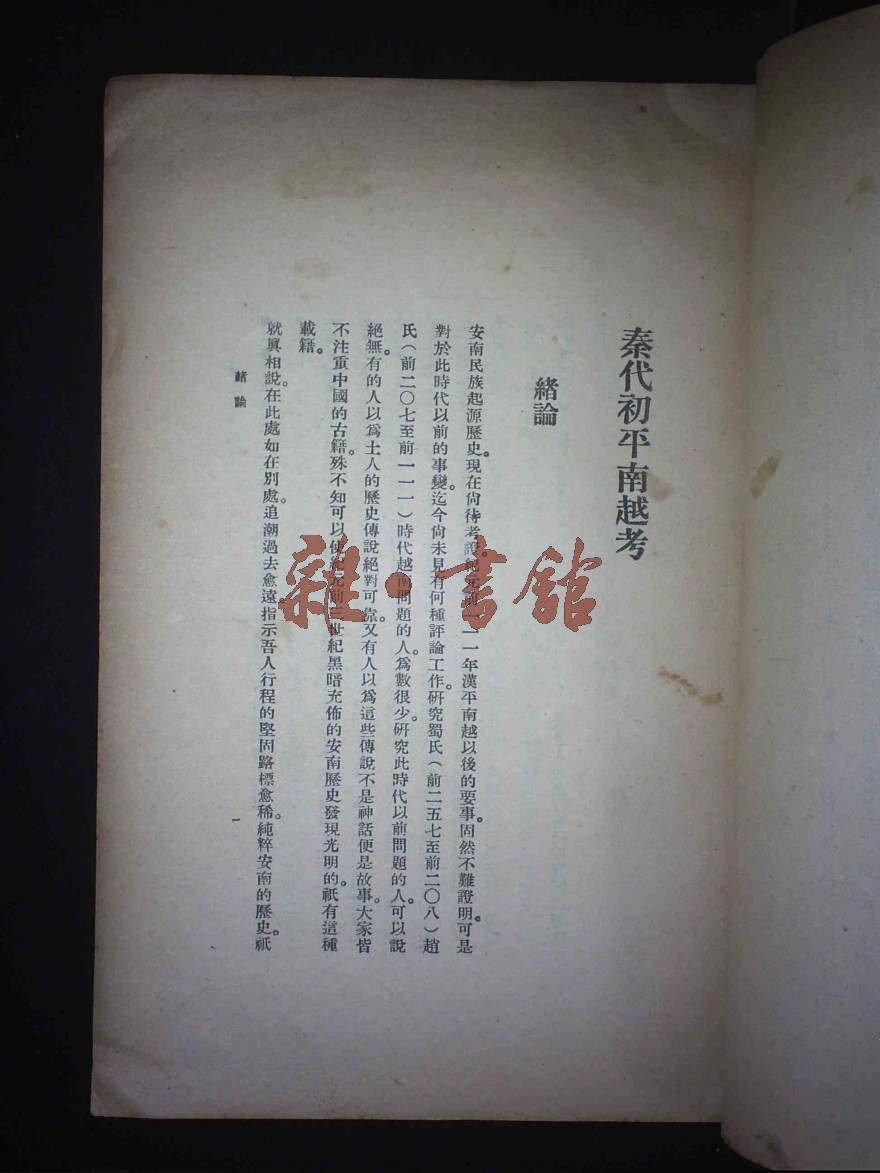 秦代初平南越考
緒論
安南民族起源歷史。現在尙待考證。紀元前一一一年漢平南越以後的要事。固然不難證明。可是
對於此時代以前的事變。迄今尙未見有何種評論工作。研究蜀氏(前二五七至前二〇八)趙
氏(前二〇七至前一一一)時代越南問題的人。爲數很少。研究此時代以前問題的人。可以說
絕無。有的人以爲土人的歷史傳說絕對可靠。又有人以爲這些傳說不是神話便是故事。大家皆
不注重中國的古籍。殊不知可以使紀元前三世紀黑暗充佈的安南歷史發現光明的。祇有這種
載籍。
就眞相說。在此處如在別處。追溯過去愈遠。指示吾人行程的堅固路標愈稀。純粹安南的歷史。祇
緒論
一
雜·書館